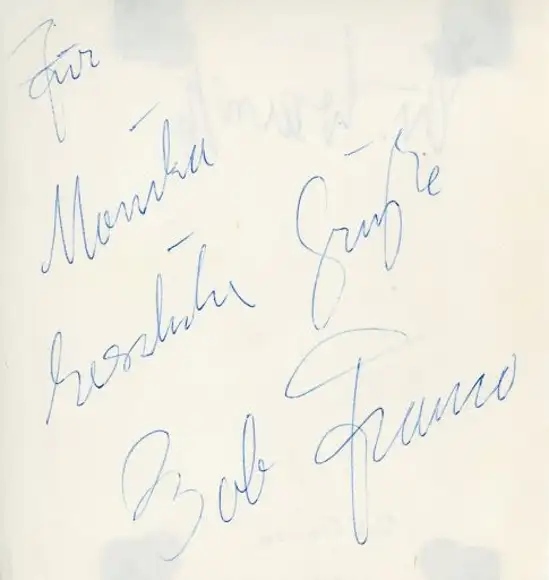 Für
Monika
herzliche Grüße
Bob Franco